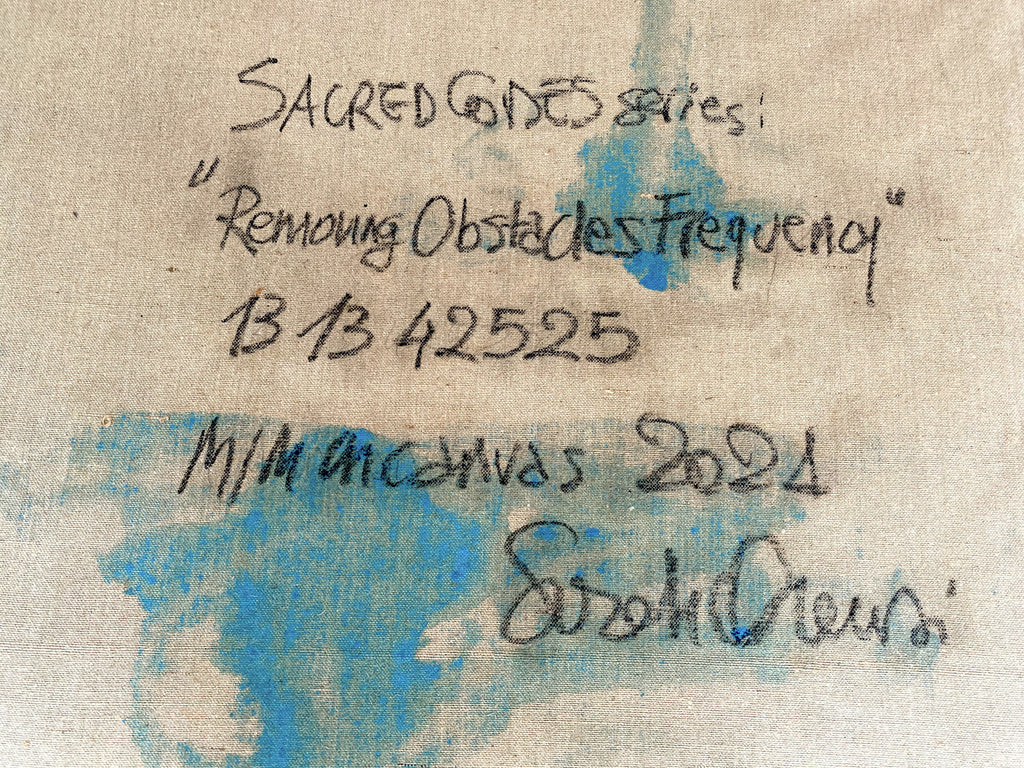 SACRED CODES series:
"Removing Obstacles Frequency"
13 13 42525
M/M on canvas 2021
Sarah